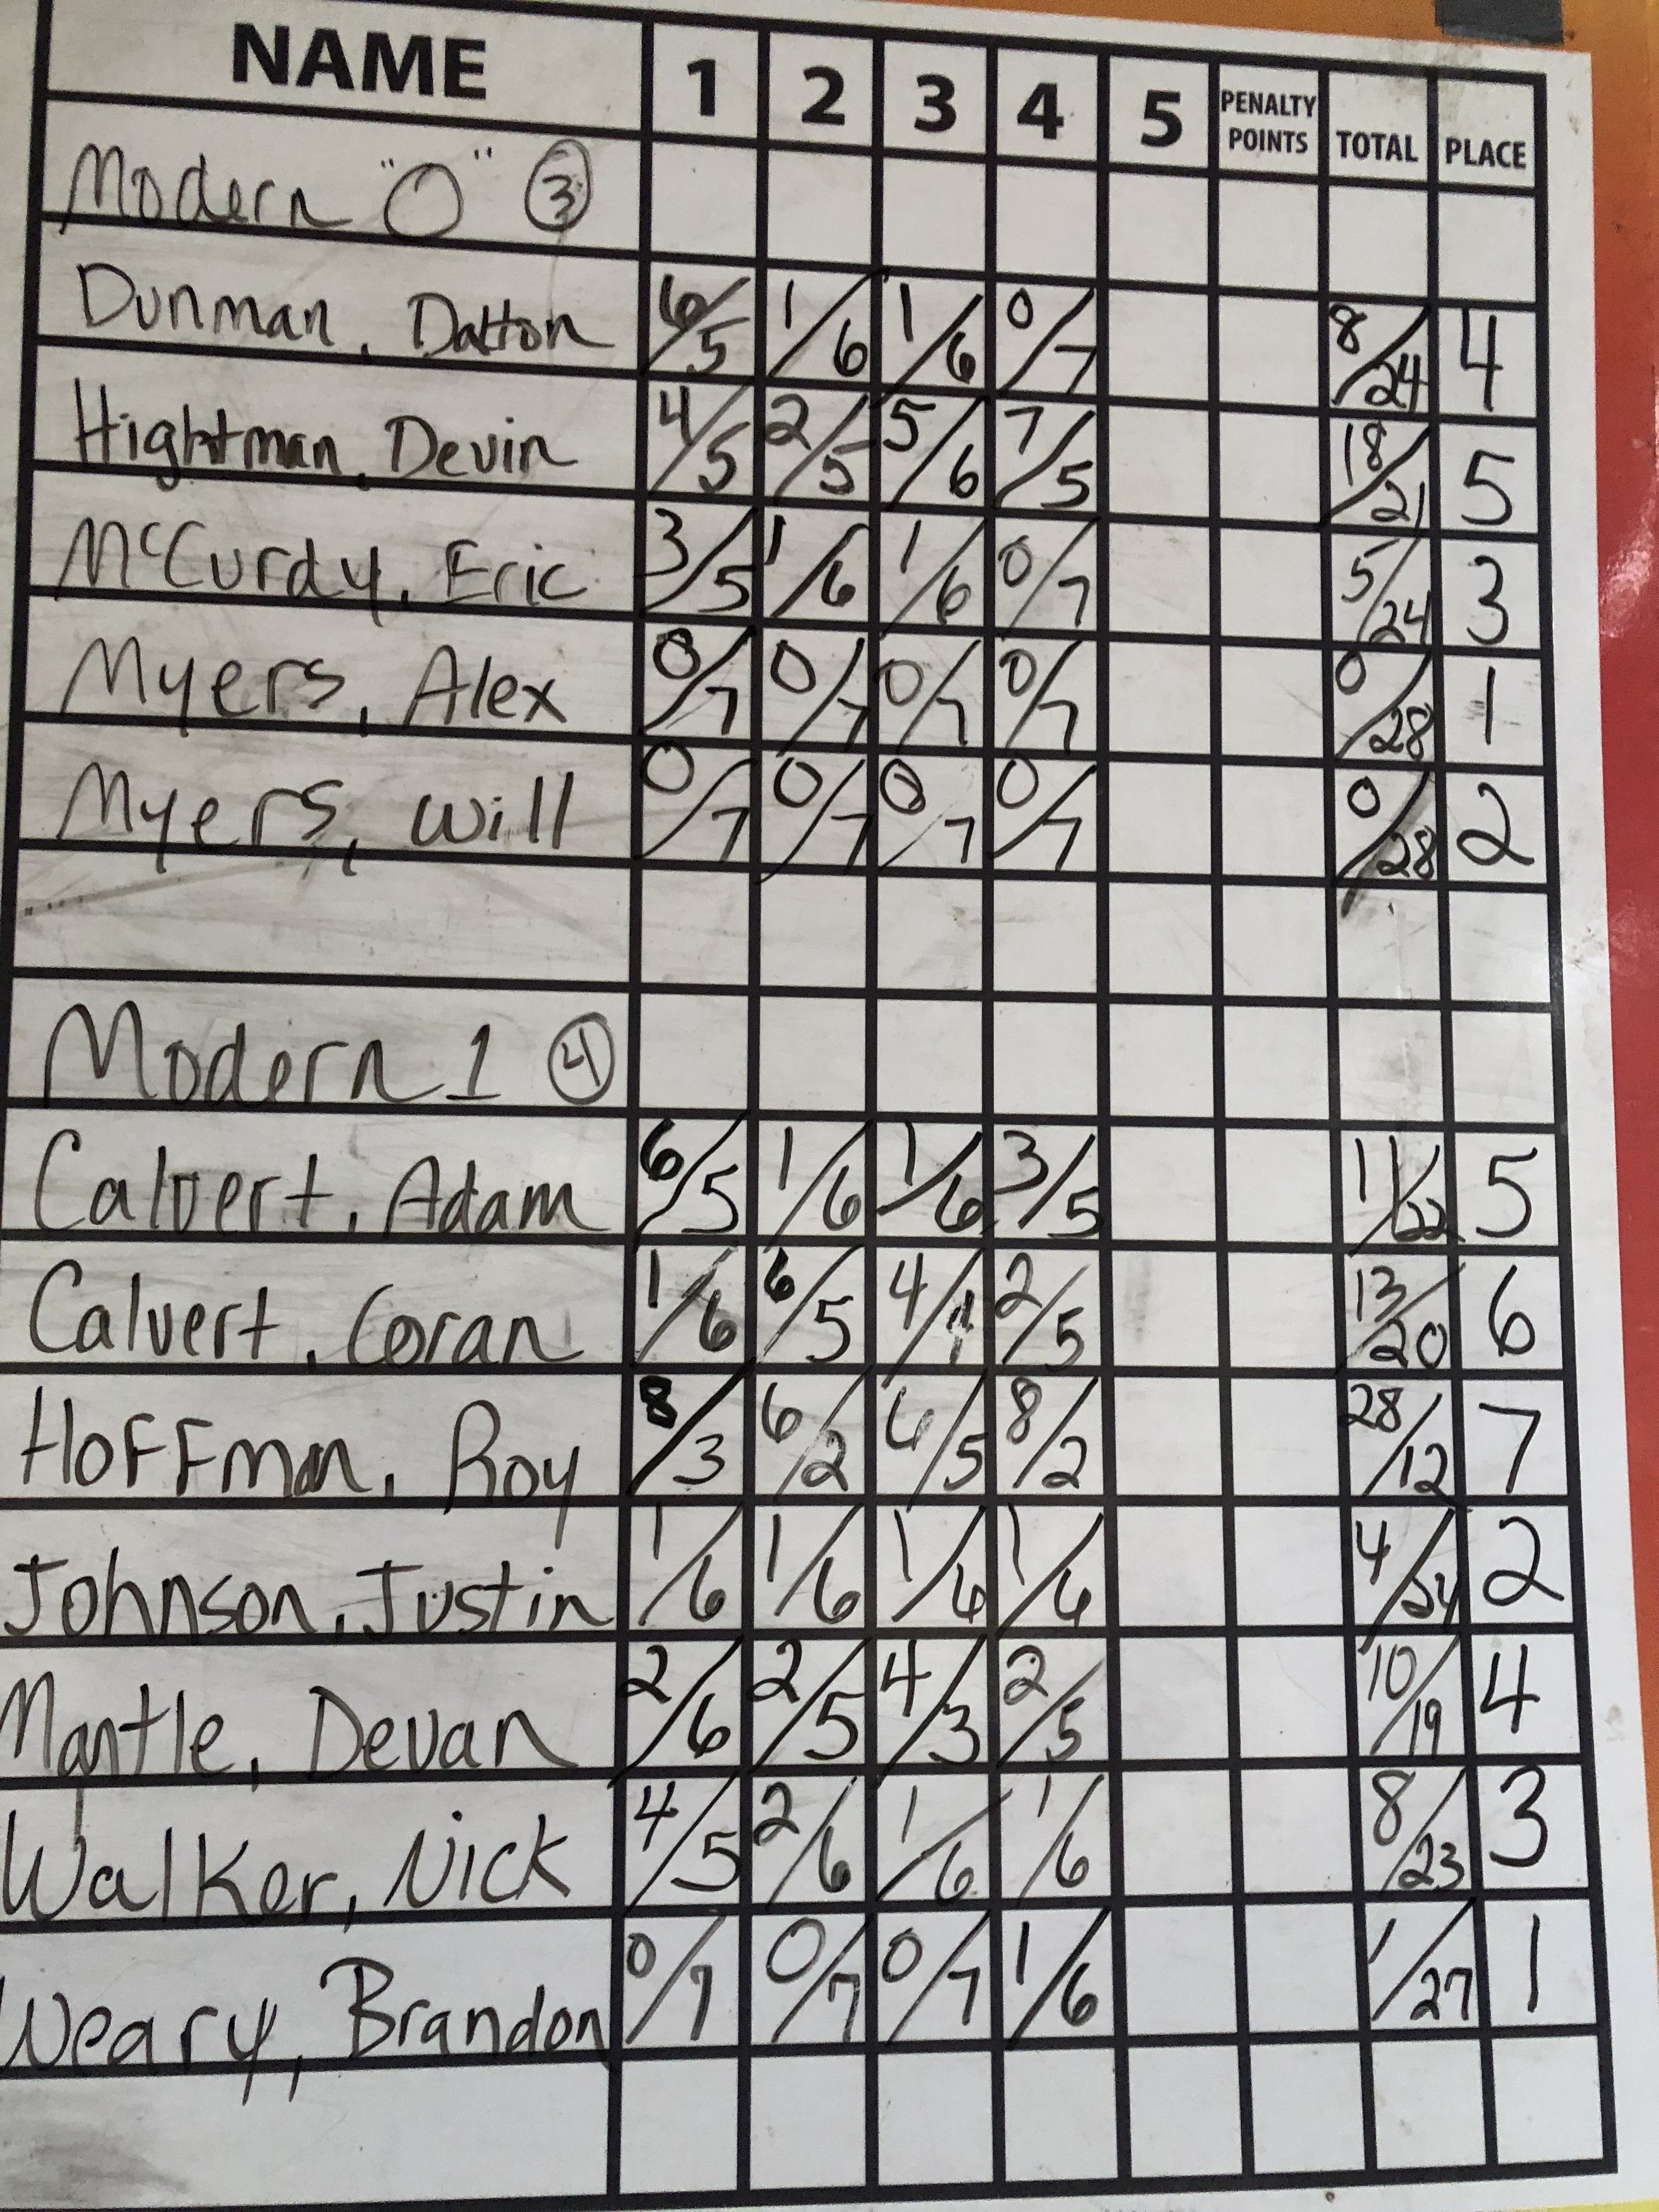 NAME 1 2 3 4 5 PENALTY POINTS TOTAL PLACE
Modern "O" 3
Dunman, Dalton 6/5 1/6 1/6 0/7 8/24 4
Hightman, Devin 4/5 2/5 5/6 7/5 18/21 5
McCurdy, Eric 3/5 1/6 1/6 0/7 5/24 3
Myers, Alex 0/7 0/7 0/7 0/7 0/28 1
Myers, Will 0/7 0/7 0/7 0/7 0/28 2
Modern 1 4
Calvert, Adam 6/5 1/6 1/6 3/5 11/22 5
Calvert, Coran 1/6 6/5 4/ 2/5 13/20 6
Hoffman, Roy 8/3 6/2 6/5 8/2 28/12 7
Johnson, Justin 1/6 1/6 1/6 1/6 4/24 2
Mantle, Devan 2/6 2/5 4/3 2/5 10/19 4
Walker, Nick 4/5 2/6 1/6 1/6 8/23 3
Weary, Brandon 0/7 0/7 0/7 1/6 1/27 1